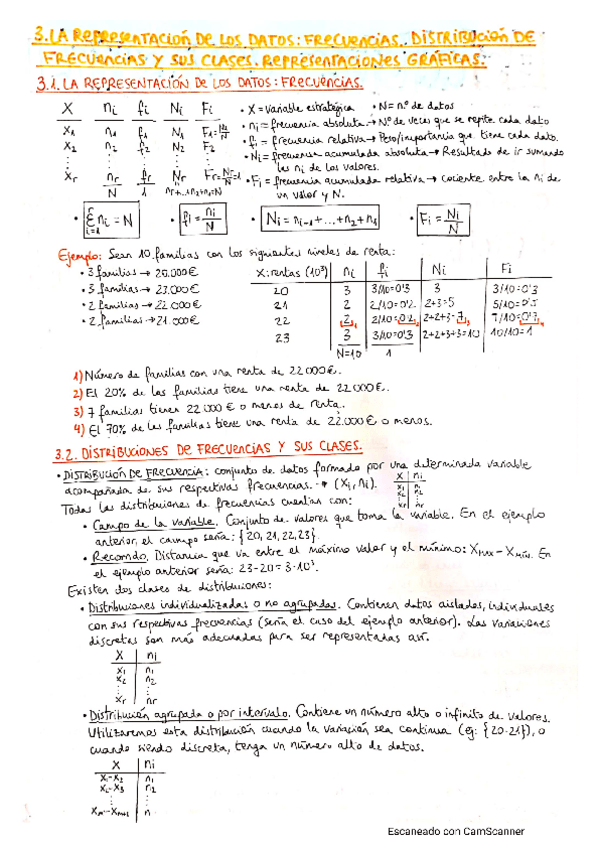 3. LA REPRESENTACIÓN DE LOS DATOS: FRECUENCIAS. DISTRIBUCIÓN DE
FRECUENCIAS Y SUS CLASES. REPRESENTACIONES GRÁFICAS.
3.1. LA REPRESENTACIÓN DE LOS DATOS: FRECUENCIAS.
X ni fi Ni Fi
x1 n1 f1 N1
x2 n2 f2 N2 F2
xr nr fr Nr
N 1
• X = variable estratégica • N = nº de datos
• ni = frecuencia absoluta → Nº de veces que se repite cada dato
• fi = frecuencia relativa → Peso/importancia que tiene cada dato.
• Ni = frecuencia acumulada absoluta → Resultado de ir sumando
las ni de los valores.
• Fi = frecuencia acumulada relativa → cociente entre la ni de
un valor y N.
• Σ ni = N • fi = ni/N • Ni = ni-1 + ... + n2 + n1 • Fi = Ni/N
Ejemplo: Sean 10 familias con los siguientes niveles de renta:
• 3 familias → 20.000€
• 3 familias → 23.000€
• 2 familias → 22.000€
• 2 familias → 21.000€
X: rentas (10³) ni fi Ni Fi
20 3 3/10=0'3 3 3/10=0'3
21 2 2/10=0'2 2+3=5 5/10=0'5
22 2 2/10=0'2 2+2+3=7 7/10=0'7
23 3 3/10=0'3 2+2+3+3=10 10/10=1
N=10 1
1) Número de familias con una renta de 22000€.
2) El 20% de las familias tiene una renta de 22000€.
3) 7 familias tienen 22000€ o menos de renta.
4) El 70% de las familias tiene una renta de 22.000€ o menos.
3.2. DISTRIBUCIONES DE FRECUENCIAS Y SUS CLASES.
• DISTRIBUCIÓN DE FRECUENCIA: conjunto de datos formado por una determinada variable
acompañada de sus respectivas frecuencias. → (xi, ni).
X ni
x1 n1
x2 n2
xr nr
Todas las distribuciones de frecuencias cuentan con:
• Campo de la variable. Conjunto de valores que toma la variable. En el ejemplo
anterior, el campo sería: {20, 21, 22, 23}.
• Recorrido. Distancia que va entre el máximo valor y el mínimo: Xmáx - Xmín. En
el ejemplo anterior sería: 23-20=3·10³.
Existen dos clases de distribuciones:
• Distribuciones individualizadas o no agrupadas. Contienen datos aislados, individuales
con sus respectivas frecuencias (sería el caso del ejemplo anterior). Las variaciones
discretas son más adecuadas para ser representadas así.
X ni
x1 n1
x2 n2
xr nr
• Distribución agrupada o por intervalo. Contiene un número alto o infinito de valores.
Utilizaremos esta distribución cuando la variación sea continua (ej: {20-21}), o
cuando siendo discreta, tenga un número alto de datos.
X ni
x1-x2 n1
x2-x3 n2
xm-xm+1 n
Escaneado con CamScanner